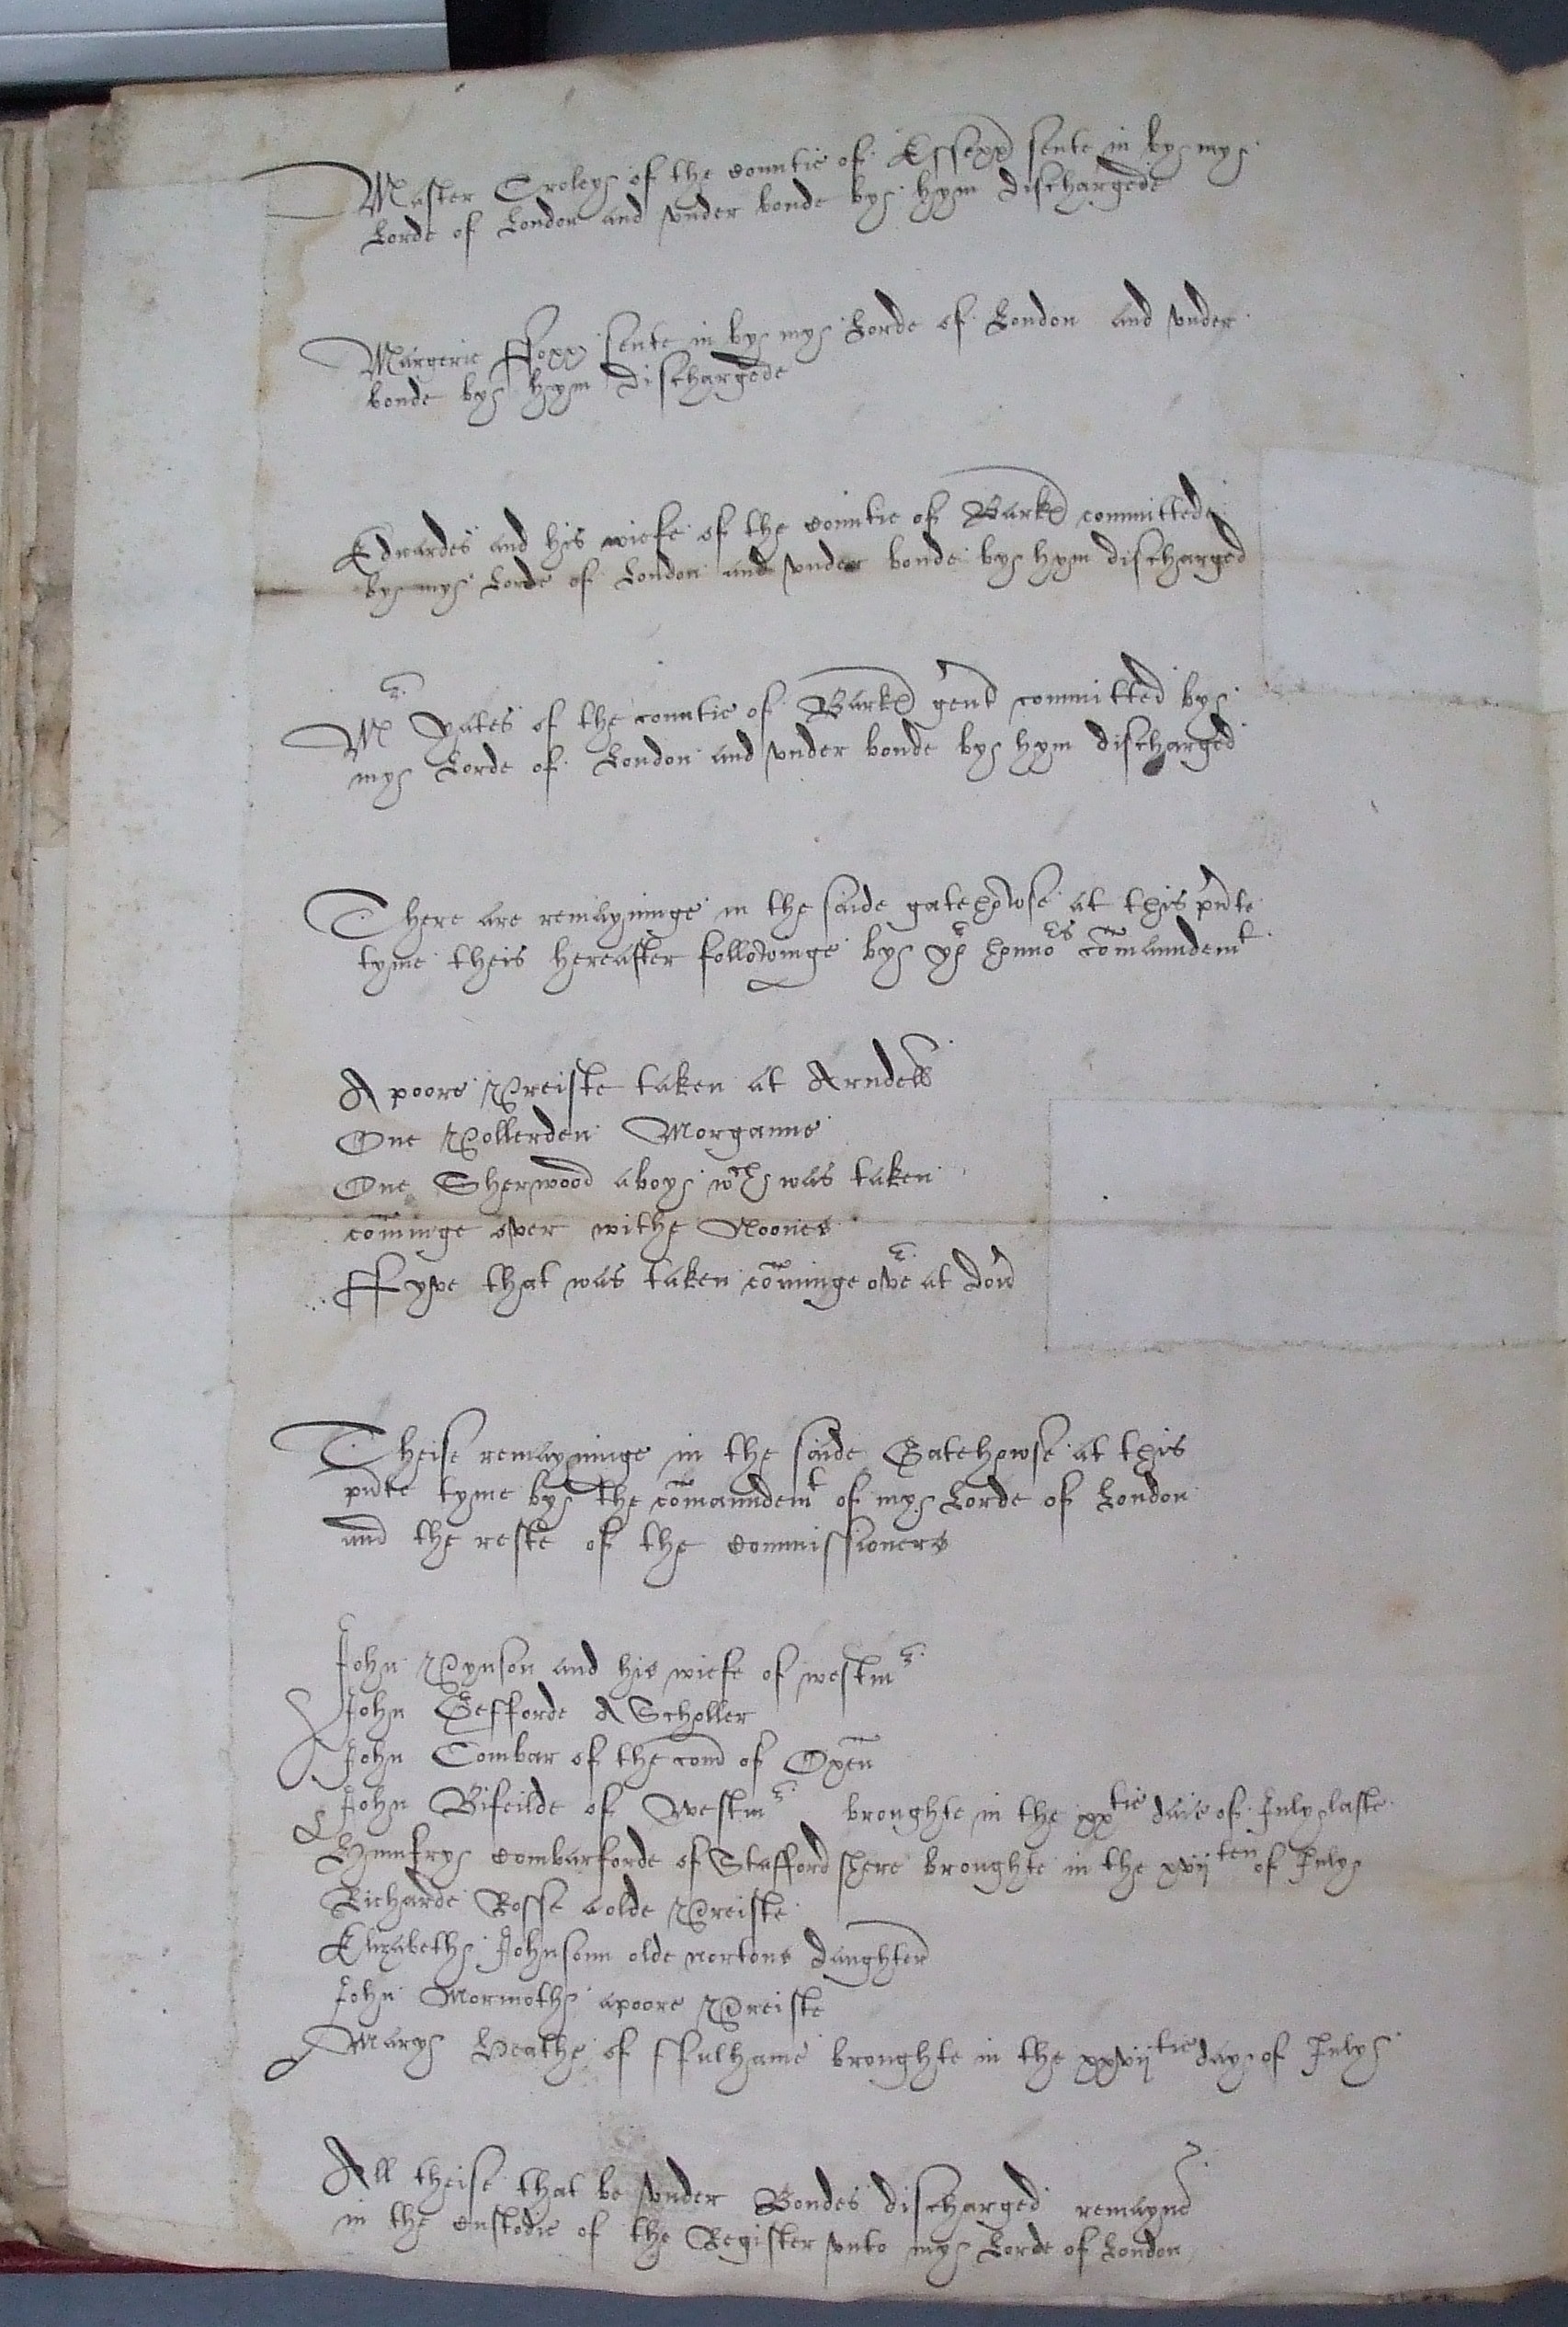 Master Croleys of the countie of Essexx sente in by my
Lorde of London and vnder bonde by hym dischargede
Margerie ffoxx sente in by my Lorde of London and vnder
bonde by hym dischargede
Edwardes and his wiefe of the countie of Bark committede
by my Lorde of London and vnder bonde by hym discharged
Mr Yates of the countie of Bark gent committed by
my Lorde of London and vnder bonde by hym discharged
There are remayninge in the saide gatehowse at this pnte
tyme theis hereafter followinge by yr honnors comaundemt
A poore Preiste taken at Arndell
One Pollerden Morganne
One Sherwood a boy wch was taken
cominge over withe Noones
ffyve that was taken cominge over at Dov
Theise remayninge in the saide Gatehowse at this
pnte tyme by the comaundemt of my Lorde of London
and the reste of the commissioners
John Pynson and his wiefe of westmr
John Gefforde A Scholler
John Combar of the com of Oxen
John Bifeilde of Westmr broughte in the xxtie daie of July laste
Humfry Combarforde of Stafford shere broughte in the xvijten of July
Richarde Rosse a olde Preiste
Elizabeth Johnsonn olde nortons daughter
John Mormoth a poore Preiste
Mary Heathe of ffulhame broughte in the xxvijtie day of July
All theise that be vnder Bondes discharged remayne
in the custodie of the Register vnto my Lorde of London